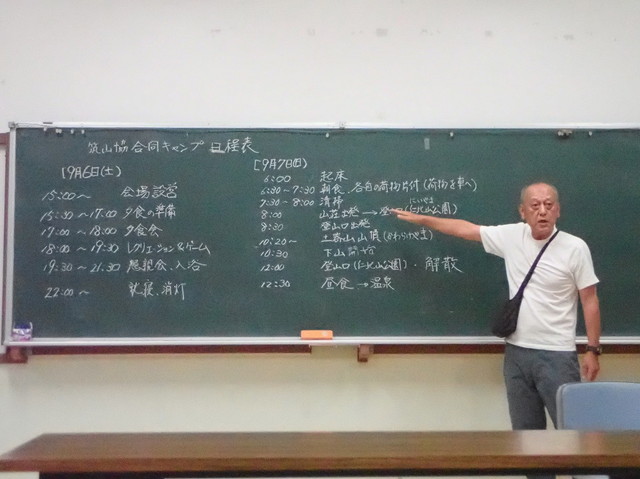 筑山協 合同キャンプ 日程表
9月6日(土)
15:00〜 会場設営
15:30〜17:00 夕食の準備
17:00 18:00 夕食会
18:00〜19:30 レクリエーション&ゲーム
19:30〜21:30 懇親会、入浴
22:00〜 就寝、消灯
9月7日(日)
6:00 起床
6:30〜7:30 朝食、各自の荷物片付(荷物を車へ)
7:30〜8:00 清掃
8:00 山荘出発→登山口(仁北山公園)
8:30 登山口出発
10:20〜 山頂
10:30 下山開始
12:00 登山口(仁北山公園)・解散
12:30 昼食→温泉